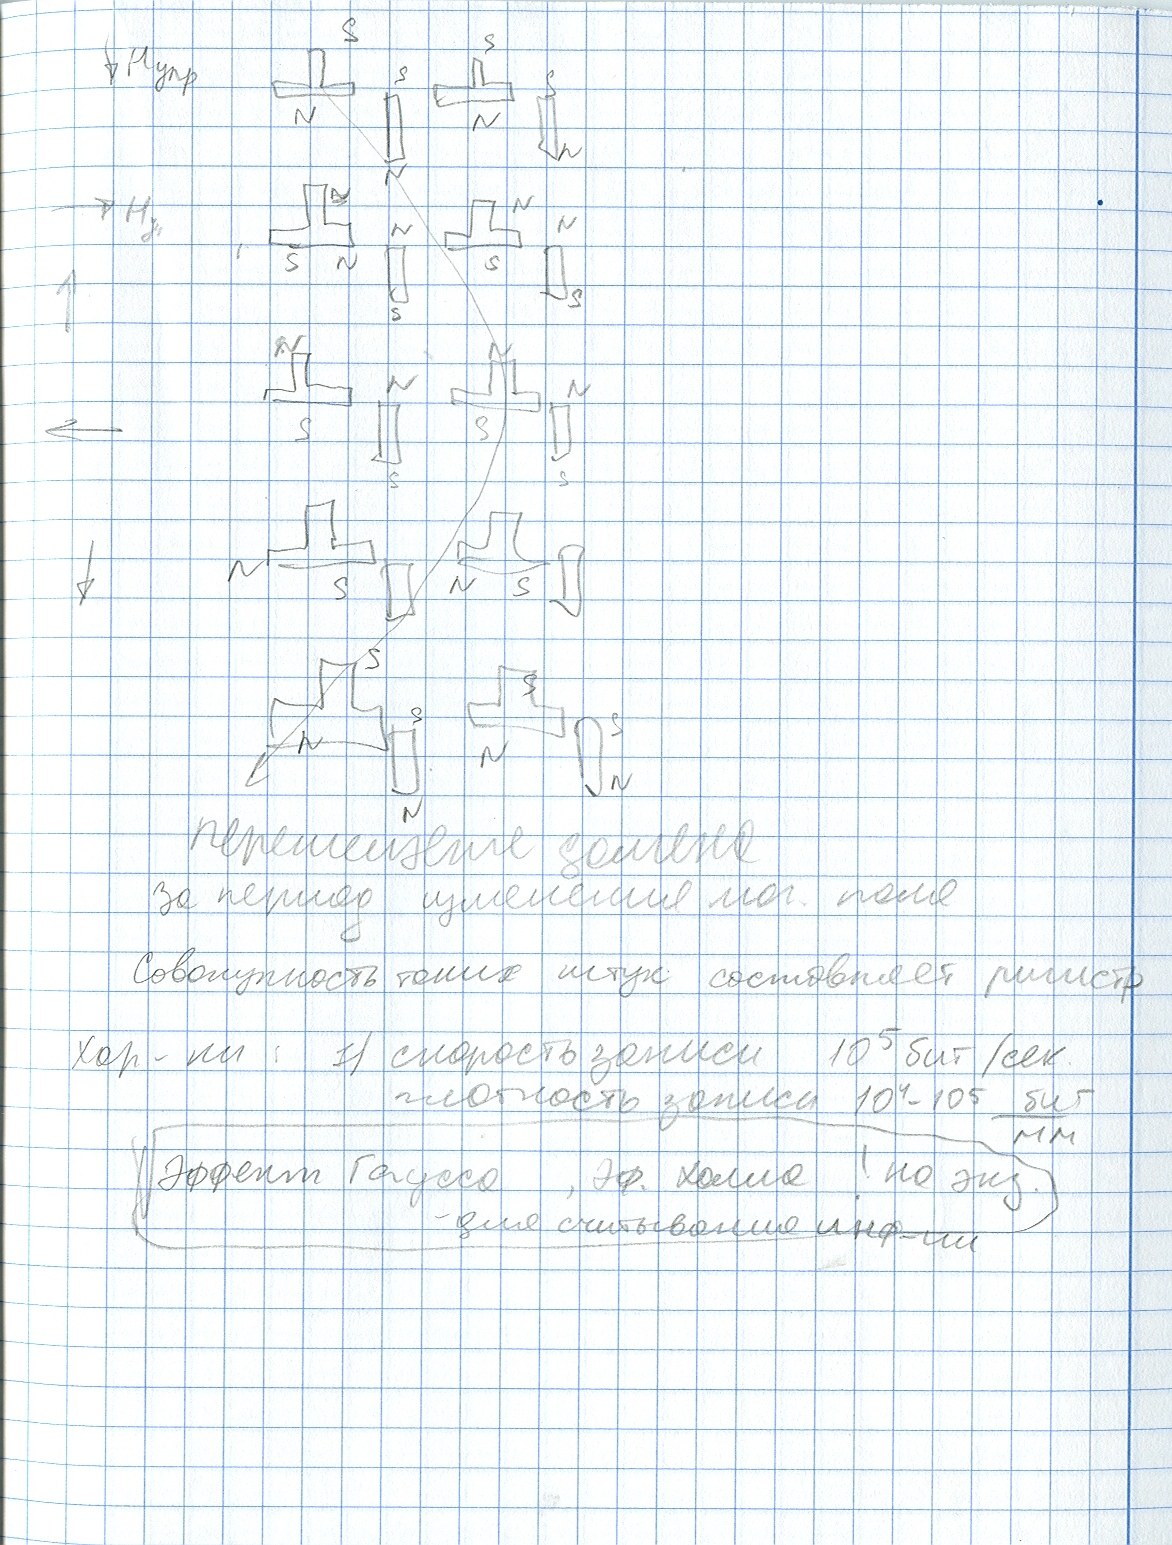 ↓ Hупр S S
S S
N N
N N
→ Hу N N N N
S N S
S S
N N
N N
S S
S S
N S N S
S S
S S
N N
N N
перемещение домена
за период изменения маг. поля
Совокупность таких штук составляет регистр
Хар-ки: 1) скорость записи 10⁵ бит/сек.
плотность записи 10⁴-10⁵ бит/мм
Эффект Гаусса, Эф. Холла ! на экз.
- для считывания инф-ии